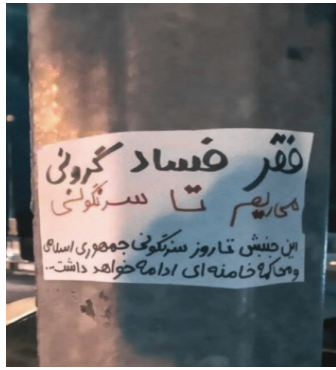 فقر فساد گرونی
می‌ریم تا سرنگونی
این جنبش تا روز سرنگونی جمهوری اسلامی
و محاکمه خامنه ای ادامه خواهد داشت...